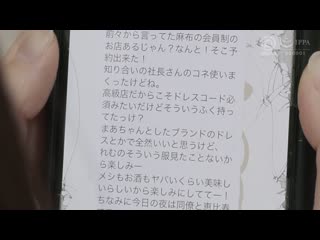 前々から言ってた麻布の会員制の
お店あるじゃん?なんと!そこ予
約出来た!
知り合いの社長さんのコネ使いま
くったけどね。
高級店だからこそドレスコード必
須みたいだけどそういうふく持っ
てたっけ?
まあちゃんとしたブランドのドレ
スとかで全然いいと思うけど、
れむのそういう服見たことないか
ら楽しみー
メシもお酒もヤバいくらい美味し
いらしいから楽しみにしててー!
ちなみに今日の夜は同僚と恵比寿
IPPA